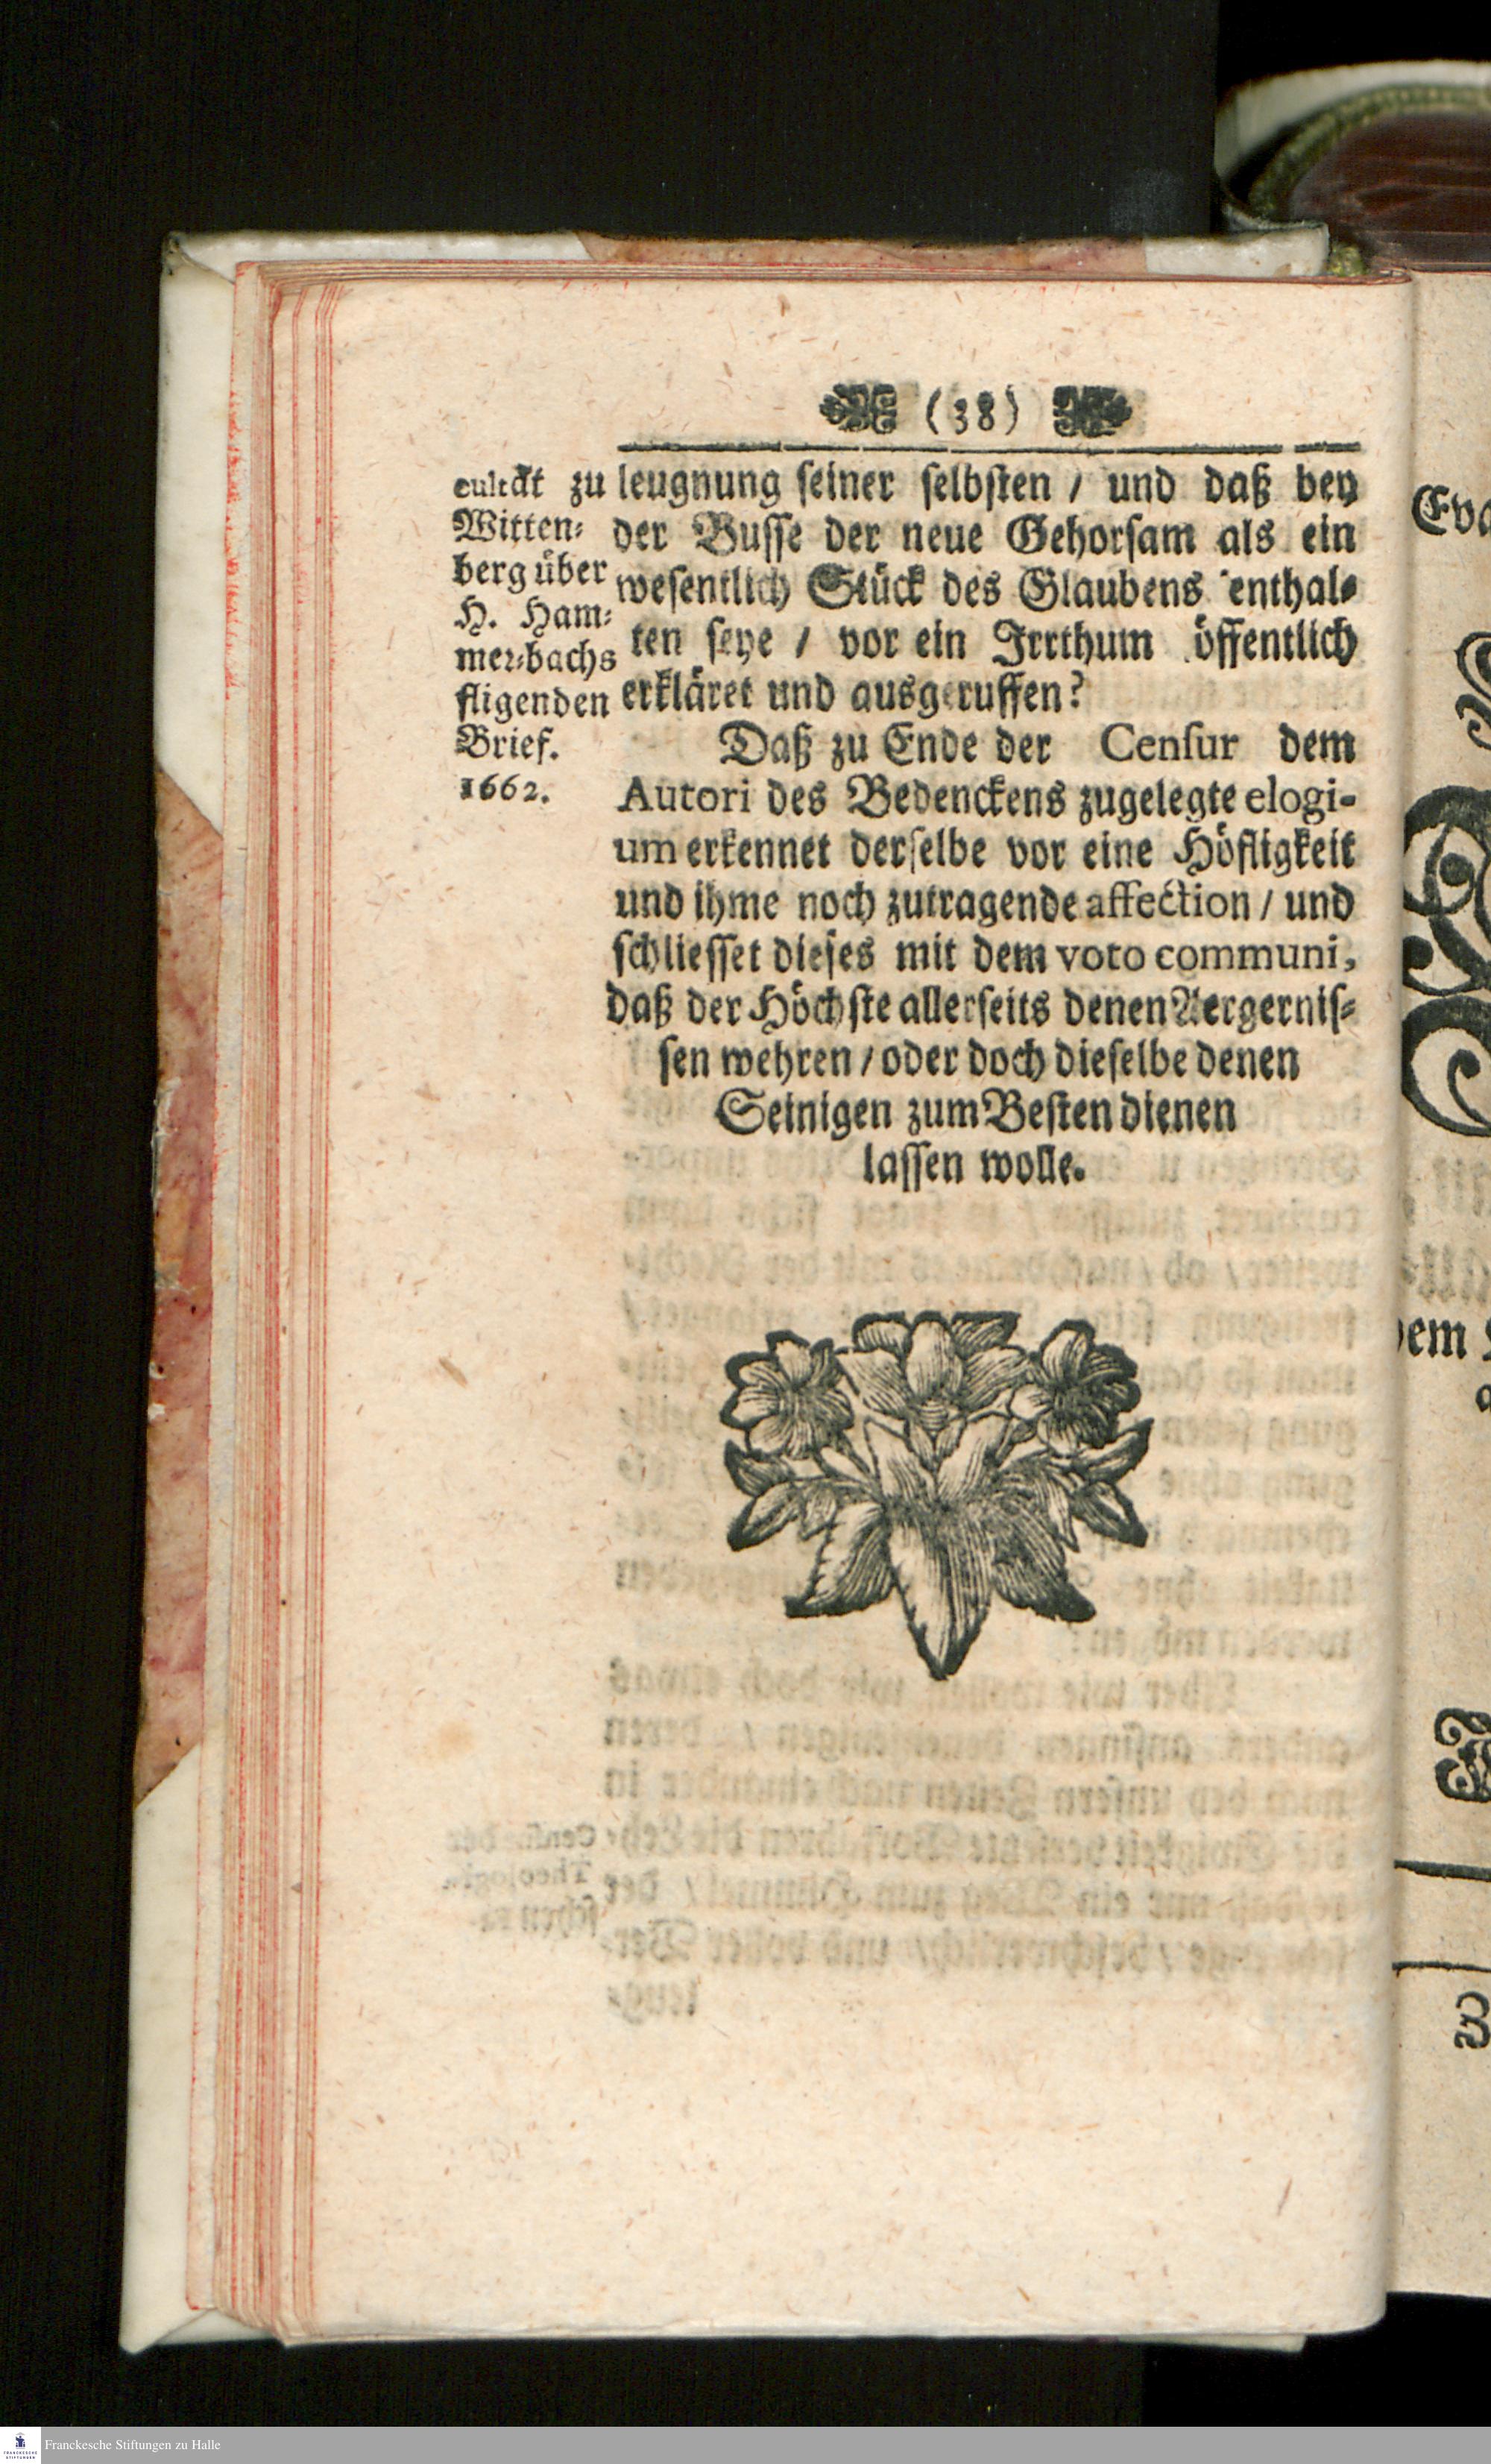 (38)
cultät zu
Witten⸗
berg über
H. Ham⸗
mer⸗bachs
fligenden
Brief.
1662.
leugnung seiner selbsten / und daß bey
der Busse der neue Gehorsam als ein
wesentlich Stück des Glaubens enthal⸗
ten seye / vor ein Irrthum öffentlich
erkläret und ausgeruffen?
Daß zu Ende der Censur dem
Autori des Bedenckens zugelegte elogi-
um erkennet derselbe vor eine Höfligkeit
und ihme noch zutragende affection / und
schliesset dieses mit dem voto communi,
daß der Höchste allerseits denen Aergernis⸗
sen wehren / oder doch dieselbe denen
Seinigen zum Besten dienen
lassen wolle.
Franckesche Stiftungen zu Halle